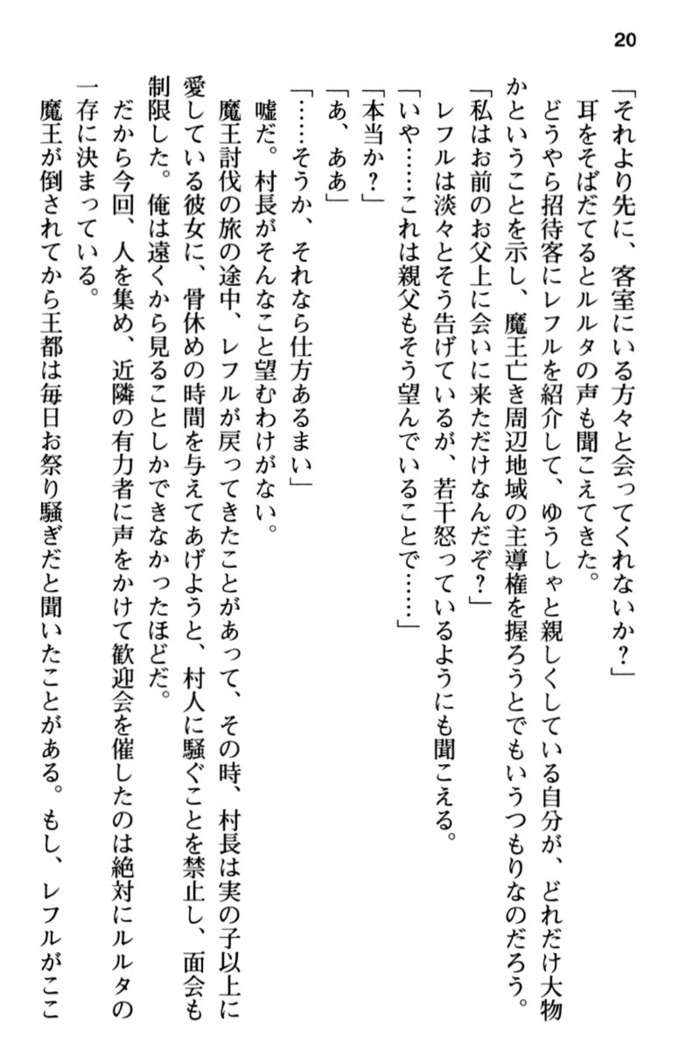 20
「それより先に、客室にいる方々と会ってくれないか？」
耳をそばだてるとルルタの声も聞こえてきた。
どうやら招待客にレフルを紹介して、ゆうしゃと親しくしている自分が、どれだけ大物
かということを示し、魔王亡き周辺地域の主導権を握ろうとでもいうつもりなのだろう。
「私はお前のお父上に会いに来ただけなんだぞ？」
レフルは淡々とそう告げているが、若干怒っているようにも聞こえる。
「いや……これは親父もそう望んでいることで……」
「本当か？」
「あ、ああ」
「……そうか、それなら仕方あるまい」
嘘だ。村長がそんなこと望むわけがない。
魔王討伐の旅の途中、レフルが戻ってきたことがあって、その時、村長は実の子以上に
愛している彼女に、骨休めの時間を与えてあげようと、村人に騒ぐことを禁止し、面会も
制限した。俺は遠くから見ることしかできなかったほどだ。
だから今回、人を集め、近隣の有力者に声をかけて歓迎会を催したのは絶対にルルタの
一存に決まっている。
魔王が倒されてから王都は毎日お祭り騒ぎだと聞いたことがある。もし、レフルがここ